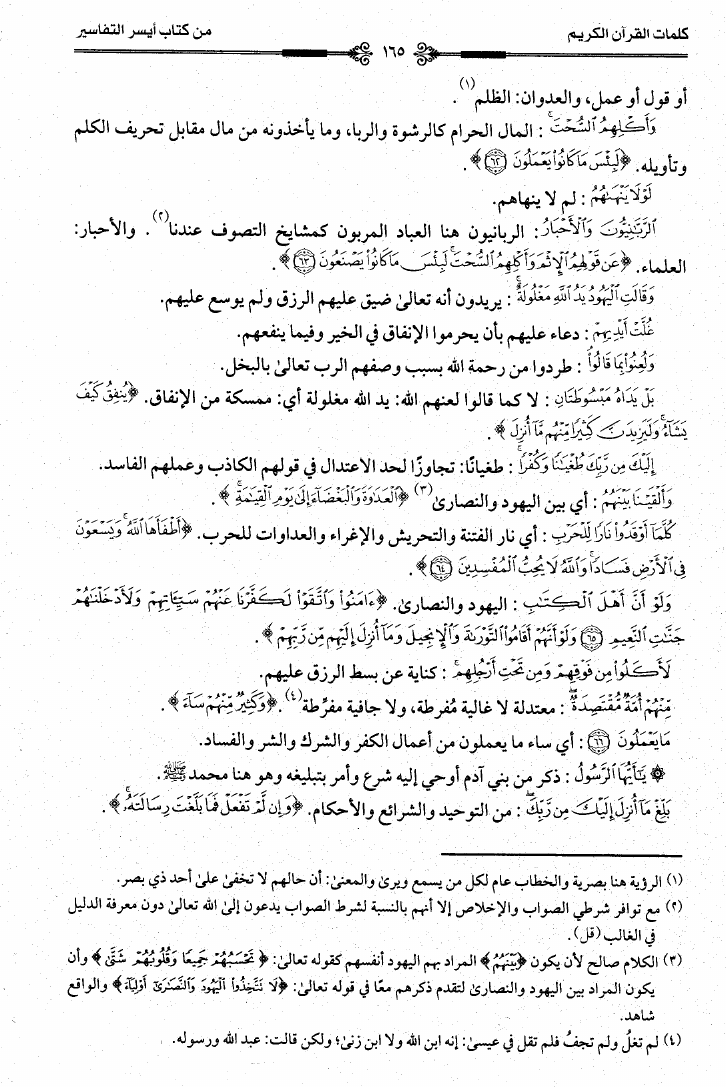 كلمات القرآن الكريم
١٦٥
من كتاب أيسر التفاسير
أو قول أو عمل، والعدوان: الظلم(١).
وَأَكْلِهِمُ السُّحْتَ : المال الحرام كالرشوة والربا، وما يأخذونه من مال مقابل تحريف الكلم
وتأويله. ﴿لَبِئْسَ مَا كَانُوا يَعْمَلُونَ ٦٢﴾.
لَوْلَا يَنْهَاهُمُ : لم لا ينهاهم.
الرَّبَّانِيُّونَ وَالْأَحْبَارُ: الربانيون هنا العباد المربون كمشايخ التصوف عندنا(٢). والأحبار:
العلماء. ﴿عَن قَوْلِهِمُ الْإِثْمَ وَأَكْلِهِمُ السُّحْتَ لَبِئْسَ مَا كَانُوا يَصْنَعُونَ ٦٣﴾.
وَقَالَتِ الْيَهُودُ يَدُ اللَّهِ مَغْلُولَةٌ : يريدون أنه تعالىٰ ضيق عليهم الرزق ولم يوسع عليهم.
غُلَّتْ أَيْدِيهِمْ : دعاء عليهم بأن يحرموا الإنفاق في الخير وفيما ينفعهم.
وَلُعِنُوا بِمَا قَالُوا : طردوا من رحمة الله بسبب وصفهم الرب تعالىٰ بالبخل.
بَلْ يَدَاهُ مَبْسُوطَتَانِ : لا كما قالوا لعنهم الله: يد الله مغلولة أي: ممسكة من الإنفاق. ﴿يُنفِقُ كَيْفَ
يَشَاءُ وَلَيَزِيدَنَّ كَثِيرًا مِّنْهُم مَّا أُنزِلَ﴾.
إِلَيْكَ مِن رَّبِّكَ طُغْيَانًا وَكُفْرًا : طغيانًا: تجاوزًا لحد الاعتدال في قولهم الكاذب وعملهم الفاسد.
وَأَلْقَيْنَا بَيْنَهُمُ : أي بين اليهود والنصارىٰ(٣) ﴿الْعَدَاوَةَ وَالْبَغْضَاءَ إِلَىٰ يَوْمِ الْقِيَامَةِ﴾.
كُلَّمَا أَوْقَدُوا نَارًا لِّلْحَرْبِ : أي نار الفتنة والتحريش والإغراء والعداوات للحرب. ﴿أَطْفَأَهَا اللَّهُ وَيَسْعَوْنَ
فِي الْأَرْضِ فَسَادًا وَاللَّهُ لَا يُحِبُّ الْمُفْسِدِينَ ٦٤﴾.
وَلَوْ أَنَّ أَهْلَ الْكِتَابِ : اليهود والنصارىٰ. ﴿ءَامَنُوا وَاتَّقَوْا لَكَفَّرْنَا عَنْهُمْ سَيِّئَاتِهِمْ وَلَأَدْخَلْنَاهُمْ
جَنَّاتِ النَّعِيمِ ٦٥ وَلَوْ أَنَّهُمْ أَقَامُوا التَّوْرَاةَ وَالْإِنجِيلَ وَمَا أُنزِلَ إِلَيْهِم مِّن رَّبِّهِمْ﴾.
لَأَكَلُوا مِن فَوْقِهِمْ وَمِن تَحْتِ أَرْجُلِهِم : كناية عن بسط الرزق عليهم.
مِّنْهُمْ أُمَّةٌ مُّقْتَصِدَةٌ : معتدلة لا غالية مُفرطة، ولا جافية مفرِّطة(٤). ﴿وَكَثِيرٌ مِّنْهُمْ سَاءَ﴾.
مَا يَعْمَلُونَ ٦٦ : أي ساء ما يعملون من أعمال الكفر والشرك والشر والفساد.
۞ يَا أَيُّهَا الرَّسُولُ : ذكر من بني آدم أوحي إليه شرع وأمر بتبليغه وهو هنا محمد ﷺ.
بَلِّغْ مَا أُنزِلَ إِلَيْكَ مِن رَّبِّكَ : من التوحيد والشرائع والأحكام. ﴿وَإِن لَّمْ تَفْعَلْ فَمَا بَلَّغْتَ رِسَالَتَهُ﴾.
(١) الرؤية هنا بصرية والخطاب عام لكل من يسمع ويرىٰ والمعنىٰ: أن حالهم لا تخفىٰ علىٰ أحد ذي بصر.
(٢) مع توافر شرطي الصواب والإخلاص إلا أنهم بالنسبة لشرط الصواب يدعون إلىٰ الله تعالىٰ دون معرفة الدليل
في الغالب (قل).
(٣) الكلام صالح لأن يكون ﴿بَيْنَهُمُ﴾ المراد بهم اليهود أنفسهم كقوله تعالىٰ: ﴿تَحْسَبُهُمْ جَمِيعًا وَقُلُوبُهُمْ شَتَّىٰ﴾ وأن
يكون المراد بين اليهود والنصارىٰ لتقدم ذكرهم معًا في قوله تعالىٰ: ﴿لَا تَتَّخِذُوا الْيَهُودَ وَالنَّصَارَىٰ أَوْلِيَاءَ﴾ والواقع
شاهد.
(٤) لم تغلُ ولم تجفُ فلم تقل في عيسىٰ: إنه ابن الله ولا ابن زنىٰ؛ ولكن قالت: عبد الله ورسوله.